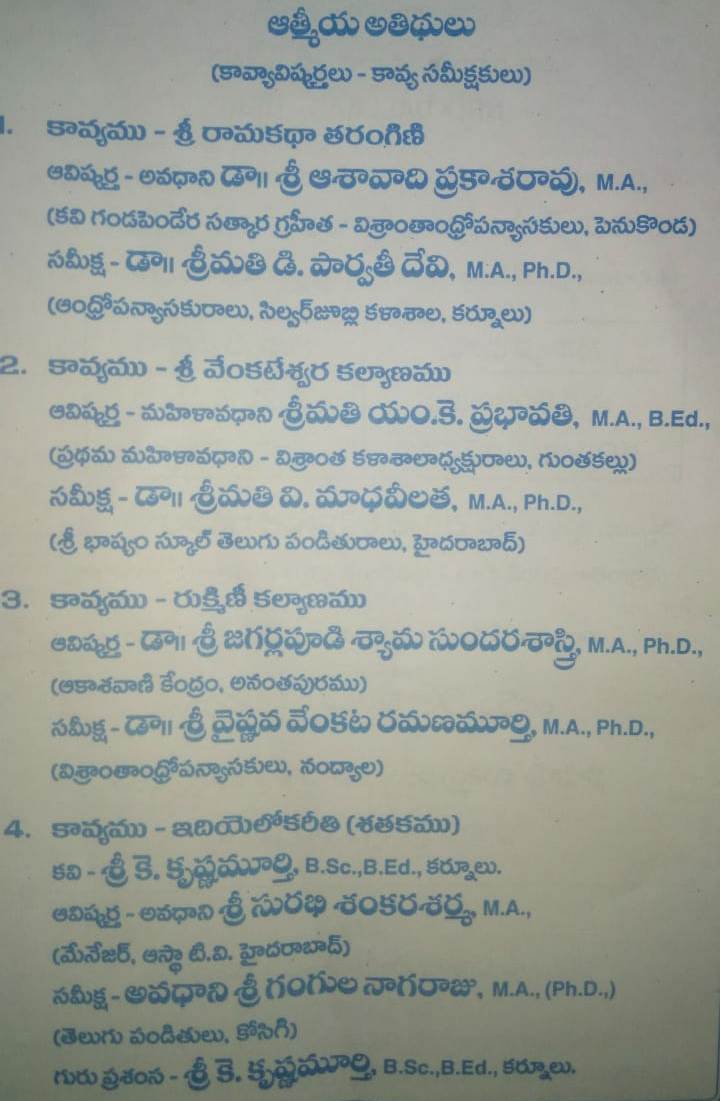 ఆత్మీయ అతిథులు
(కావ్యావిష్కర్తలు - కావ్య సమీక్షకులు)
1. కావ్యము - శ్రీ రామకథా తరంగిణి
ఆవిష్కర్త - అవధాని డా॥ శ్రీ ఆశావాది ప్రకాశరావు, M.A.,
(కవి గండపెండేర సత్కార గ్రహీత - విశ్రాంతాంధ్రోపన్యాసకులు, పెనుకొండ)
సమీక్ష - డా॥ శ్రీమతి డి. పార్వతీ దేవి, M.A., Ph.D.,
(ఆంధ్రోపన్యాసకురాలు, సిల్వర్‌జూబ్లి కళాశాల, కర్నూలు)
2. కావ్యము - శ్రీ వేంకటేశ్వర కల్యాణము
ఆవిష్కర్త - మహిళావధాని శ్రీమతి యం.కె. ప్రభావతి, M.A., B.Ed.,
(ప్రథమ మహిళావధాని - విశ్రాంత కళాశాలాధ్యక్షురాలు, గుంతకల్లు)
సమీక్ష - డా॥ శ్రీమతి వి. మాధవీలత, M.A., Ph.D.,
(శ్రీ భాష్యం స్కూల్ తెలుగు పండితురాలు, హైదరాబాద్)
3. కావ్యము - రుక్మిణీ కల్యాణము
ఆవిష్కర్త - డా॥ శ్రీ జగర్లపూడి శ్యామ సుందరశాస్త్రి, M.A., Ph.D.,
(ఆకాశవాణి కేంద్రం, అనంతపురము)
సమీక్ష - డా॥ శ్రీ వైష్ణవ వేంకట రమణమూర్తి, M.A., Ph.D.,
(విశ్రాంతాంధ్రోపన్యాసకులు, నంద్యాల)
4. కావ్యము - ఇదియెలోకరీతి (శతకము)
కవి - శ్రీ కె. కృష్ణమూర్తి, B.Sc.,B.Ed., కర్నూలు.
ఆవిష్కర్త - అవధాని శ్రీ సురభి శంకరశర్మ, M.A.,
(మేనేజర్, ఆస్థా టి.వి. హైదరాబాద్)
సమీక్ష - అవధాని శ్రీ గంగుల నాగరాజు, M.A., (Ph.D.,)
(తెలుగు పండితులు, కోసిగి)
గురు ప్రశంస - శ్రీ కె. కృష్ణమూర్తి, B.Sc.,B.Ed., కర్నూలు.